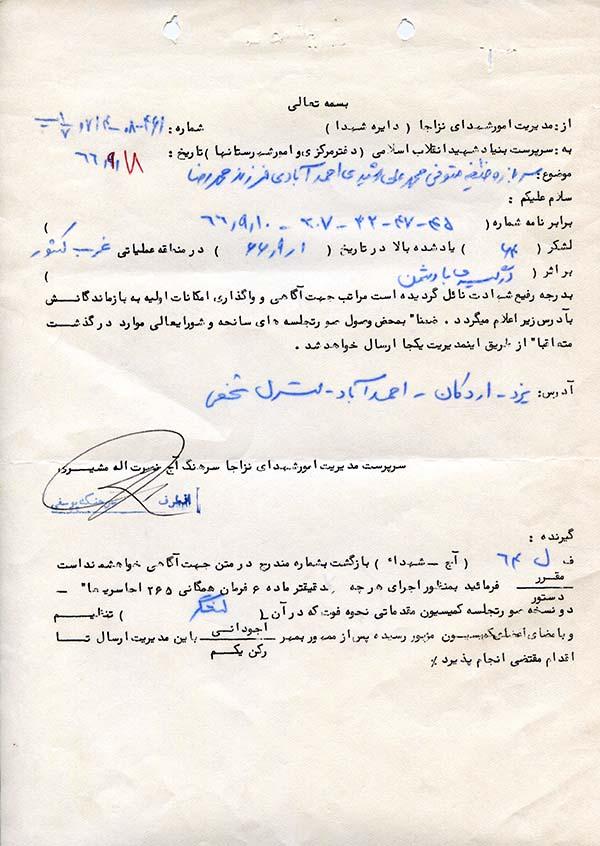 بسمه تعالی
از : مدیریت امور شهدای نزاجا ( دایره شهدا ) شماره :
به : سرپرست بنیاد شهید انقلاب اسلامی ( دفتر مرکزی و امور شهرستانها ) تاریخ : ۶۶/۹/۱۸
موضوع : سرباز وظیفه متوفی محمد علی رشیدی احمد آبادی فرزند محمد رضا
سلام علیکم :
برابر نامه شماره ( ۴۵-۴۷-۳۲-۳۰۷ - ۶۶/۹/۱۰ )
لشگر ( ۶۴ ) یاد شده بالا در تاریخ ( ۶۶/۹/۱ ) در منطقه عملیاتی غرب کشور
بر اثر ( درگیری با دشمن )
بدرجه رفیع شهادت نائل گردیده است مراتب جهت آگاهی و واگذاری امکانات اولیه به بازماندگانش
بآدرس زیر اعلام میگردد . ضمنا" بمحض وصول صورتجلسه های سانحه و شورایعالی موارد درگذشت
متعاقبا" از طریق اینمدیریت یکجا ارسال خواهد شد .
آدرس : یزد - اردکان - احمد آباد - منزل شخصی
سرپرست مدیریت امور شهدای نزاجا سرهنگ آج نصرت اله مشیری
از طرف سرهنگ یوسفی
گیرنده :
ف ل ۶۴ ( آج - شهداء ) بازگشت بشماره مندرج در متن جهت آگاهی خواهشمند است
مقرر
دستور
فرمائید بمنظور اجرای هرچه دقیقتر ماده ۶ فرمان همگانی ۲۶۵ اجاسریها" -
دو نسخه صورتجلسه کمیسیون مقدماتی نحوه فوت که در آن ( لشگر ) تنظیم
و بامضای اعضای کمیسیون مزبور رسیده پس از ممهور بمهر
آجودانی
رکن یکم
باین مدیریت ارسال تا
اقدام مقتضی انجام پذیرد ٪